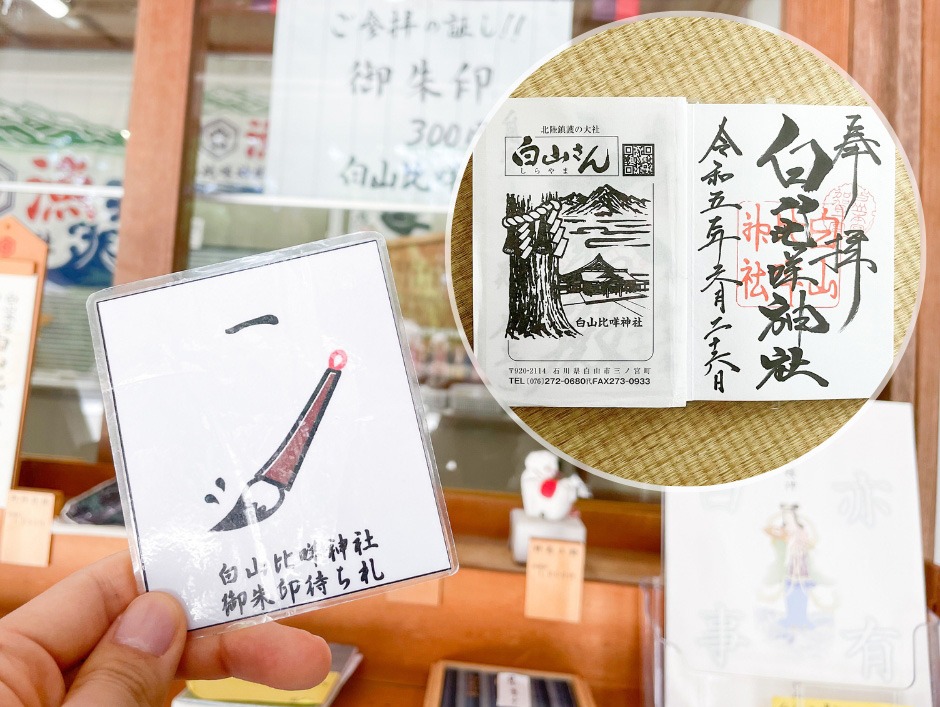 ご参拝の証し!!
御朱印
300
白山比咩
一
白山比咩神社
御朱印待ち札
北陸鎮護の大社
白山さん
しらやま
白山比咩神社
〒920-2114 石川県白山市三ノ宮町
TEL(076)272-0680代FAX273-0933
奉拝
白山比咩神社
白山比咩神社
令和五年六月二十六日
亦有
白事